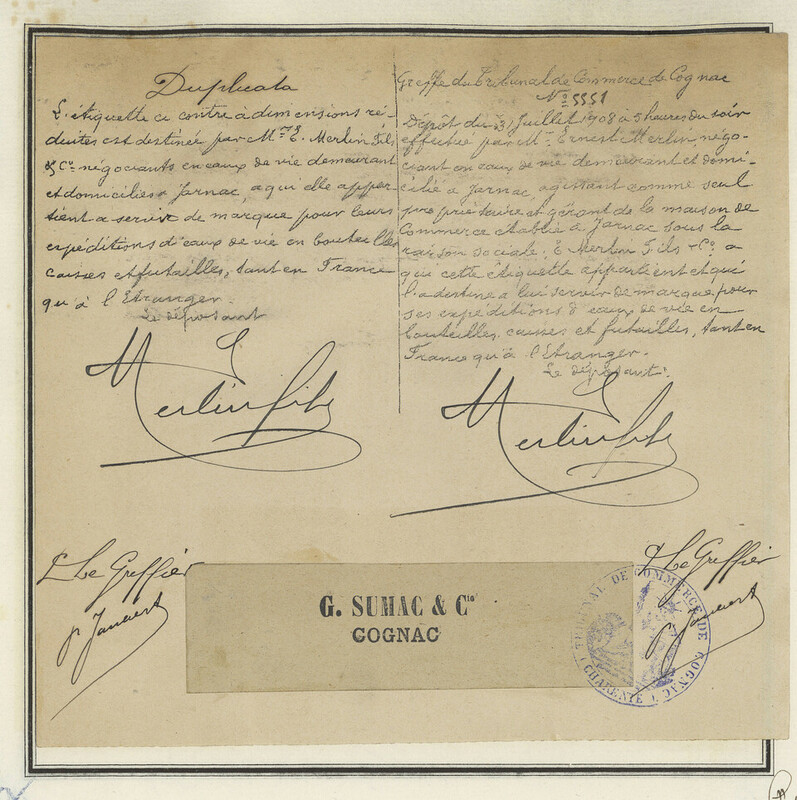 Duplicata
L'étiquette ci contre à dimensions ré-
duites est destinée par Mrs E. Merlin Fils
& Co. négociants en eaux de vie demeurant
et domiciliés à Jarnac, a qui elle appar-
tient a servir de marque pour leurs
expéditions d'eaux de vie en bouteilles
caisses et futailles, tant en France
qu'à l'Etranger.
Le déposant
E Merlin fils
Greffe du Tribunal de Commerce de Cognac
No 5551
Dépôt du 31 Juillet 1908 à 5 heures du soir
effectué par Mr Ernest Merlin, négo-
ciant en eaux de vie demeurant et domi-
cilié à Jarnac, agissant comme seul
propriétaire et gérant de la maison de
Commerce établie à Jarnac sous la
raison sociale: E Merlin Fils & Co. a
qui cette étiquette appartient et qui
l'a destine a lui servir de marque pour
ses expéditions d'eaux de vie en
bouteilles, caisses et futailles, tant en
France qu'à l'Etranger.
Le déposant.
E Merlin fils
Le Greffier
Le Greffier
G. SUMAC & Cie
COGNAC
TRIBUNAL DE COMMERCE DE COGNAC
(CHARENTE)